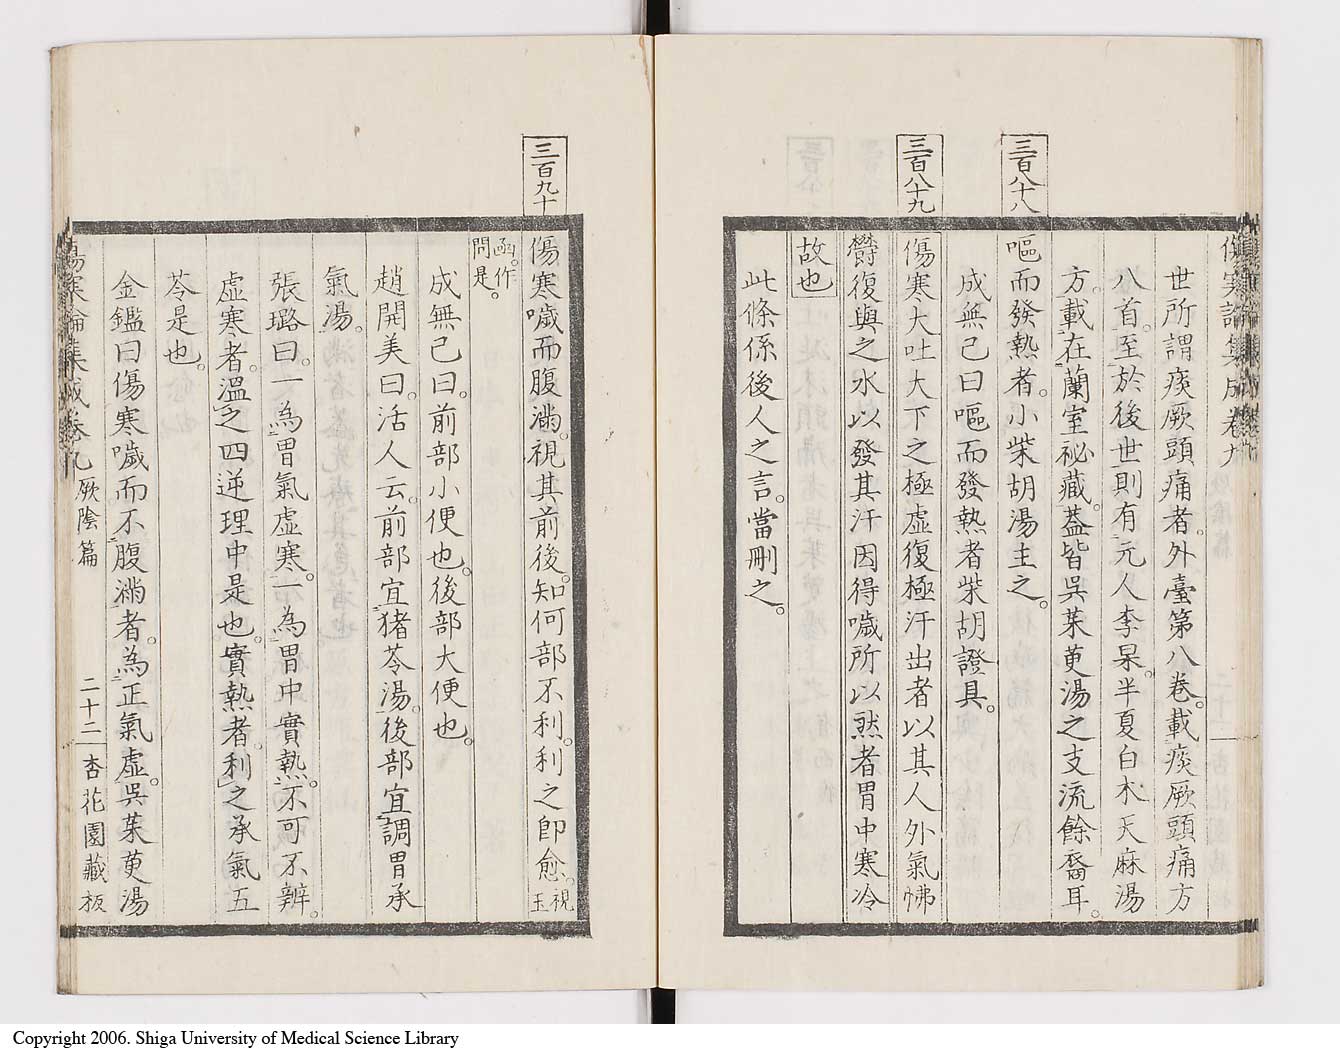 傷寒論集成卷九
世所謂痰厥頭痛者。外臺第八卷。載痰厥頭痛方
八首。至於後世則有元人李杲。半夏白朮天麻湯
方。載在蘭室祕藏。葢皆呉茱萸湯之支流餘裔耳。
三百八十八
嘔而發熱者。小柴胡湯主之。
成無己曰嘔而發熱者柴胡證具。
三百八十九
傷寒大吐大下之極虛復極汗出者以其人外氣怫
欝復與之水以發其汗因得噦所以然者胃中寒冷
故也
此條係後人之言。當刪之。
三百九十
傷寒噦而腹滿。視其前後。知何部不利。利之卽愈。視玉
函。作問是。
成無己曰。前部小便也。後部大便也。
趙開美曰。活人云。前部宜猪苓湯。後部宜調胃承
氣湯。
張璐曰。一為胃氣虛寒。一為胃中實熱。不可不辨。
虛寒者。溫之四逆理中是也。實熱者。利之承氣五
苓是也。
金鑑曰傷寒噦而不腹滿者。為正氣虛。呉茱萸湯
傷寒論集成卷九 厥陰篇 二十二 杏花園藏板
Copyright 2006. Shiga University of Medical Science Library